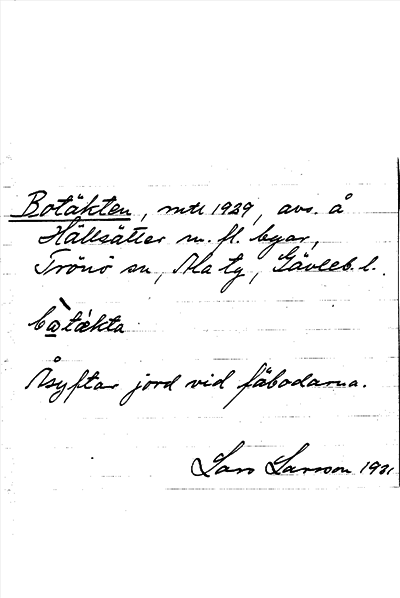 Botäkten, mtl 1929, avs. å
Hällsätter m. fl. byar,
Trönö sn, Ala tg, Gävleb. l.
bὼtä́kta
Åsyftar jord vid fäbodarna.
Lars Larsson 1931